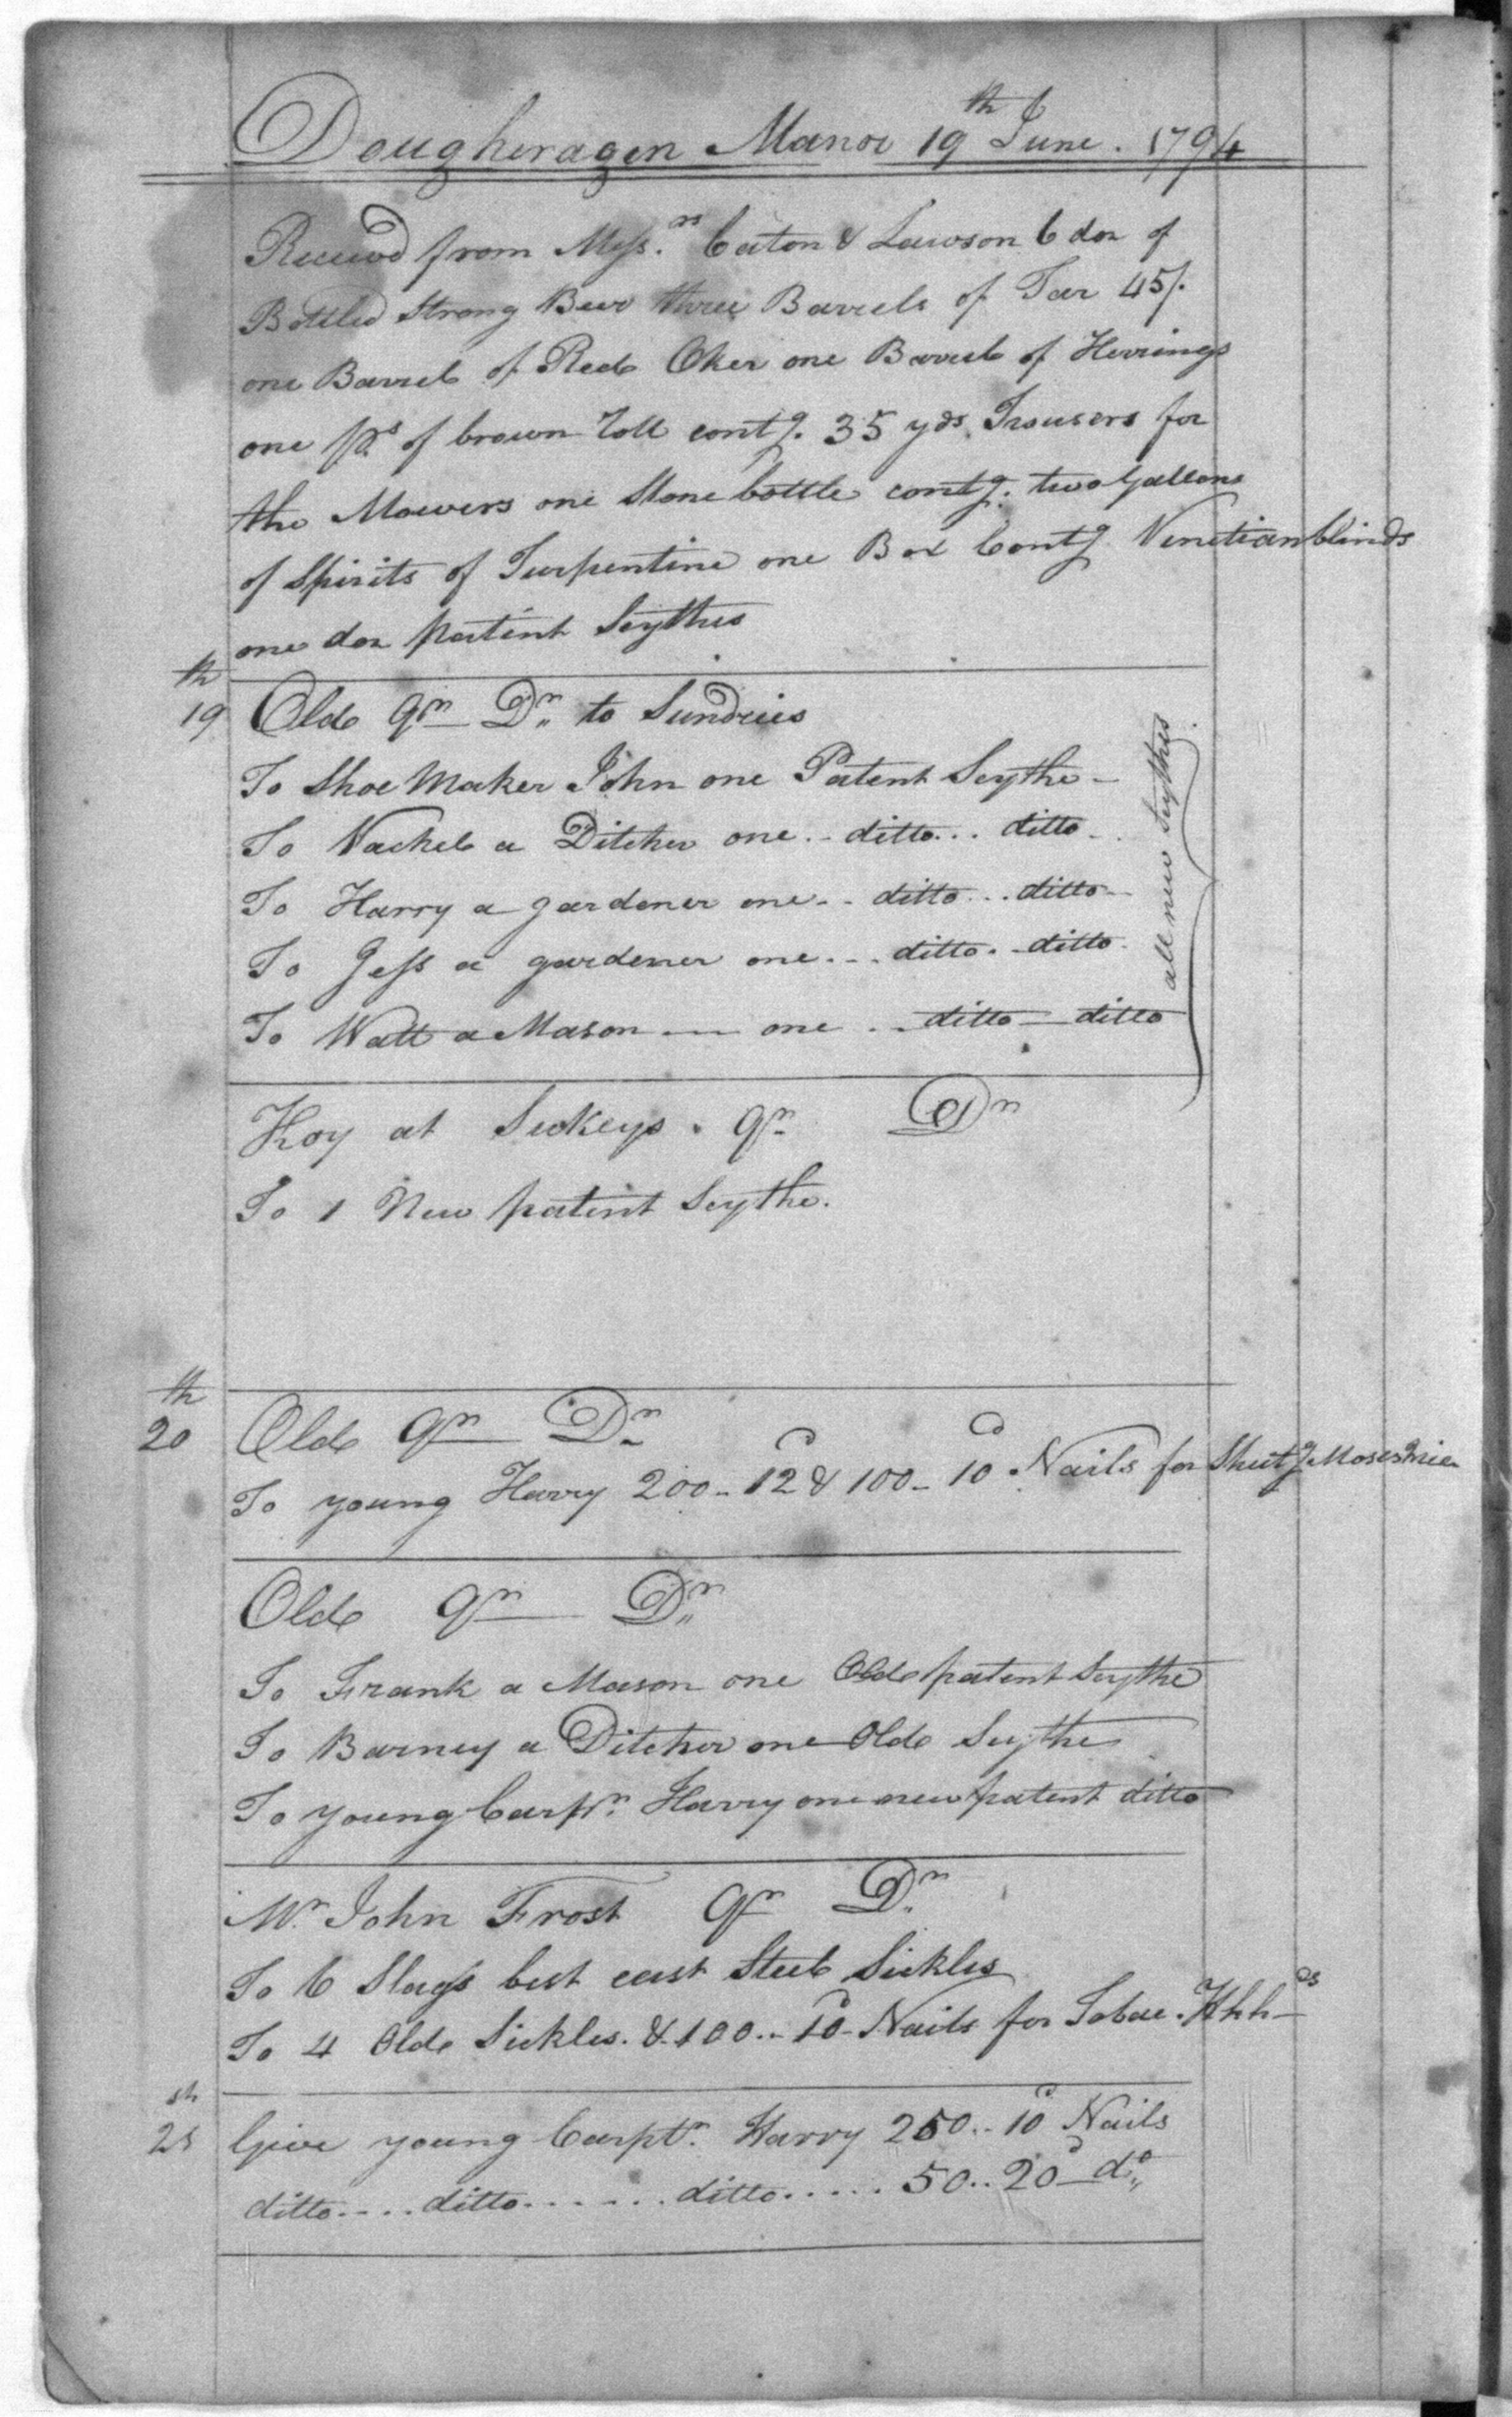 Dougheragen Manor 19th June. 1794
Received from Mess.rs Caton & Lawson 6 doz of
Bottled Strong Beer three Barrels of Tar 45/.
one Barrel of Red Oker one Barrel of Herrings
one ps of brown Roll contg. 35 yds Trousers for
the Mowers one Stone bottle contg. two Gallons
of Spirits of Turpentine one Box Contg Venetian blinds
one doz patent Scythes
19th Olde qr Dr to Sundries
To Shoe Maker John one Patent Scythe
To Nackel a Ditcher one .. ditto... ditto
To Harry a gardener one .. ditto... ditto
To Jess a gardener one ... ditto.. ditto
To Watt a Mason — one .. ditto — ditto
all new Scythes
Hoy at Suckeys . qr Dr
To 1 New patent Scythe.
20th Olde qr Dr
To young Harry 200 - 12d & 100 - 10d Nails for Sheetg Moses
Olde qr Dr
To Frank a Mason one Olde patent Scythe
To Barney a Ditcher one Olde Scythe
To young Carpr. Harry one new patent ditto
Mr John Frost qr Dr
To 6 Slays best cast Steel Sickles
To 4 Olde Sickles. & 100 .. 10d Nails for Tobac. Hhds
21st Give young Carptr. Harry 250 .. 10d Nails
ditto.... ditto...... ditto..... 50 .. 20d do